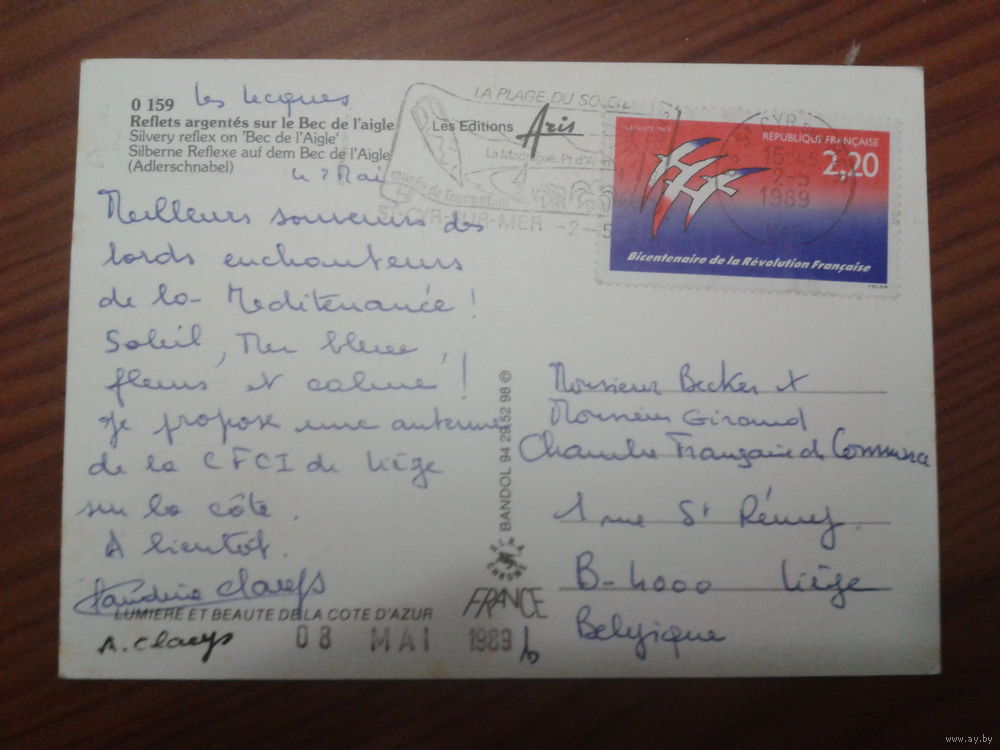 Les Lecques
0 159
Reflets argentés sur le Bec de l'aigle
Silvery reflex on 'Bec de l'Aigle'
Silberne Reflexe auf dem Bec de l'Aigle
(Adlerschnabel)
Les Editions Aris
LA PLAGE DU SOLEIL
La Madrague, Pt d'Al
musée de Tauroentum
ST CYR-SUR-MER -2--5
CYR
15-45
2-5
1989
VAR
LA POSTE 1989
RÉPUBLIQUE FRANÇAISE
2,20
Bicentenaire de la Révolution Française
FOLON
le 2 Mai
Meilleurs souvenirs des
bords enchanteurs
de la Mediterranée !
Soleil, Mer bleue,
fleurs et calme !
Je propose une antenne
de la CFCI de Liège
sur la côte.
A bientôt.
Claeys
A. Claeys
LUMIERE ET BEAUTE DE LA COTE D'AZUR
08 MAI 1989
BANDOL 94 29 52 98 ©
FRANCE
Monsieur Becker et
Monsieur Giraud
Chambre Française de Commerce
1 rue St Rémy
B-4000 Liège
Belgique
www.ay.by